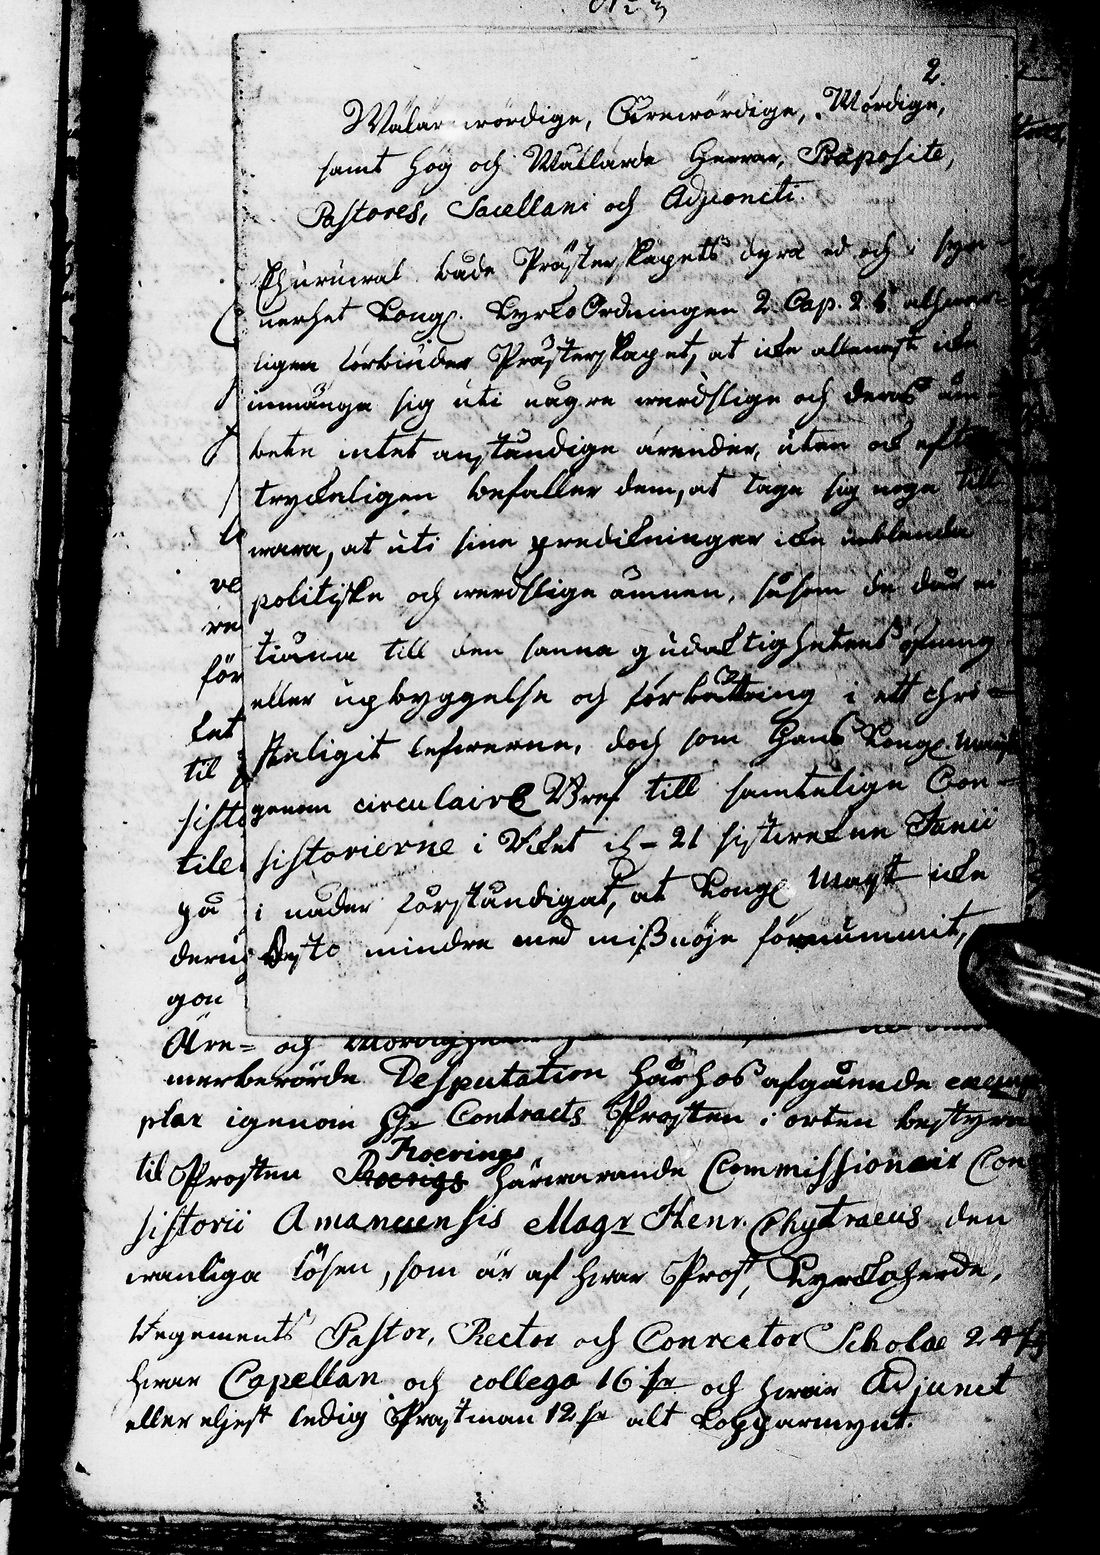 No 3
2.
Wälärewördige, Ärewördige, Wördige,
samt Hög och Wällärde Herrar, Præposite,
Pastores, Sacellani och Adjuncti.
Ehuruwäl både Prästerskapets dyra ed och i syn-
nerhet Kongl. Kyrko Ordningen 2 Cap. 2 §. alfwar-
ligen förbinder Prästerskapet, at icke allenast icke
inmänga sig uti några werdslige och deras äm-
bete intet anständige ärender, utan ock efter
tryckeligen befaller dem, at taga sig noga till
wara, at uti sina predikningar icke inblanda
politiske och werdslige ämnen, såsom de där ei
tiäna till den sanna gudaktighetens öfning
eller upbyggelse och förbättring i ett chri-
steligit lefwerne, doch som Hans Kongl. Mayst
genom circulaire Bref till samtelige Con-
sistorierne i Riket af 21 sistwekne Junii
i nåder förständigat, at Kongl Mayst icke
desto mindre med missnöje förnummit,
ve
re
för
ket
til
sisto
tile
på
deru
gon
Äre- och
merberörde Desputation härhos afgående exem
plar igenom Hr Contracts Prosten i orten bestyra
til Prosten Roerings härwarande Commissionair Con
sistorii Amanuensis Magr Henr. Chytraeus den
wanliga lösen, som är af hwar Prost, Kyrckoherde,
Regements Pastor, Rector och Conrector Scholae 24
hwar Capellan och collega 16 sr och hwar Adjunct
eller eljest ledig Prästman 12 sr alt kopparmynt.